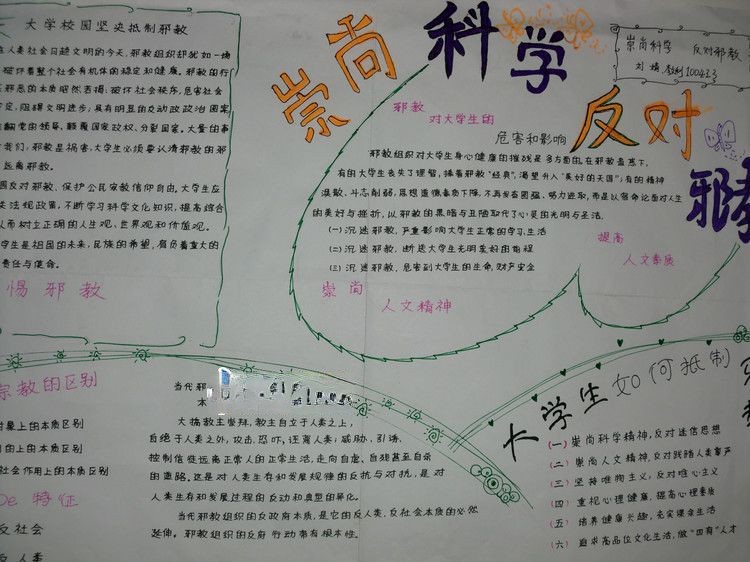 大学校园坚决抵制邪教
在人类社会日趋文明的今天,邪教组织却犹如一场
破坏着整个社会有机体的稳定和健康。邪教的行
其邪恶的本质昭然若揭:破坏社会秩序,危害社会
安定,阻碍文明进步,具有明显的反动政治图案
推翻党的领导,颠覆国家政权,分裂国家。大量的事
我们,邪教是祸害,大学生必须要认清邪教的邪
远离邪教。
反对邪教,保护公民宗教信仰自由。大学生应
法规政策,不断学习科学文化知识,提高综合
从而树立正确的人生观,世界观和价值观。
学生是祖国的未来,民族的希望,肩负着重大的
责任与使命。
惕邪教
崇尚科学
反对邪教
崇尚科学 反对邪教
刘婧 100423
邪教
对大学生的
危害和影响
邪教组织对大学生身心健康的摧残是多方面的,在邪教蛊惑下,
有的大学生丧失了理智,捧着邪教"经典",渴望升入"美好的天国";有的精神
涣散,斗志削弱,思想道德素质下降,不再发奋图强,努力进取,而是以宿命论面对人生
的美好与挫折,以邪教的黑暗与丑陋取代了心灵的光明与圣洁。
(一)沉迷邪教,严重影响大学生正常的学习生活
(二)沉迷邪教,断送大学生光明美好的前程
(三)沉迷邪教,危害到大学生的生命,财产安全
提高
人文素质
崇尚
人文精神
宗教的区别
对象上的本质区别
目的上的本质区别
社会作用上的本质区别
De 特征
反社会
反人类
当代邪
本
大搞教主崇拜,教主自立于人类之上,
自绝于人类之外,攻击,恐吓,诬蔑人类;威胁,引诱,
控制信徒远离正常人的正常生活,走向自虐、自残甚至自杀
的道路。这是对人类生存和发展规律的反抗与对抗,是对
人类生存和发展过程的反动和典型的异化。
当代邪教组织的反政府本质,是它的反人类,反社会本质的必然
延伸。邪教组织的反政府行动带有根本性。
大学生如何抵制
(一)崇尚科学精神,反对迷信思想
(二)崇尚人文精神,反对践踏人类尊严
(三)坚持唯物主义,反对唯心主义
(四)重视心理健康,提高心理素质
(五)培养健康兴趣,充实课余生活
(六)追求高品位文化生活,做"四有"人才